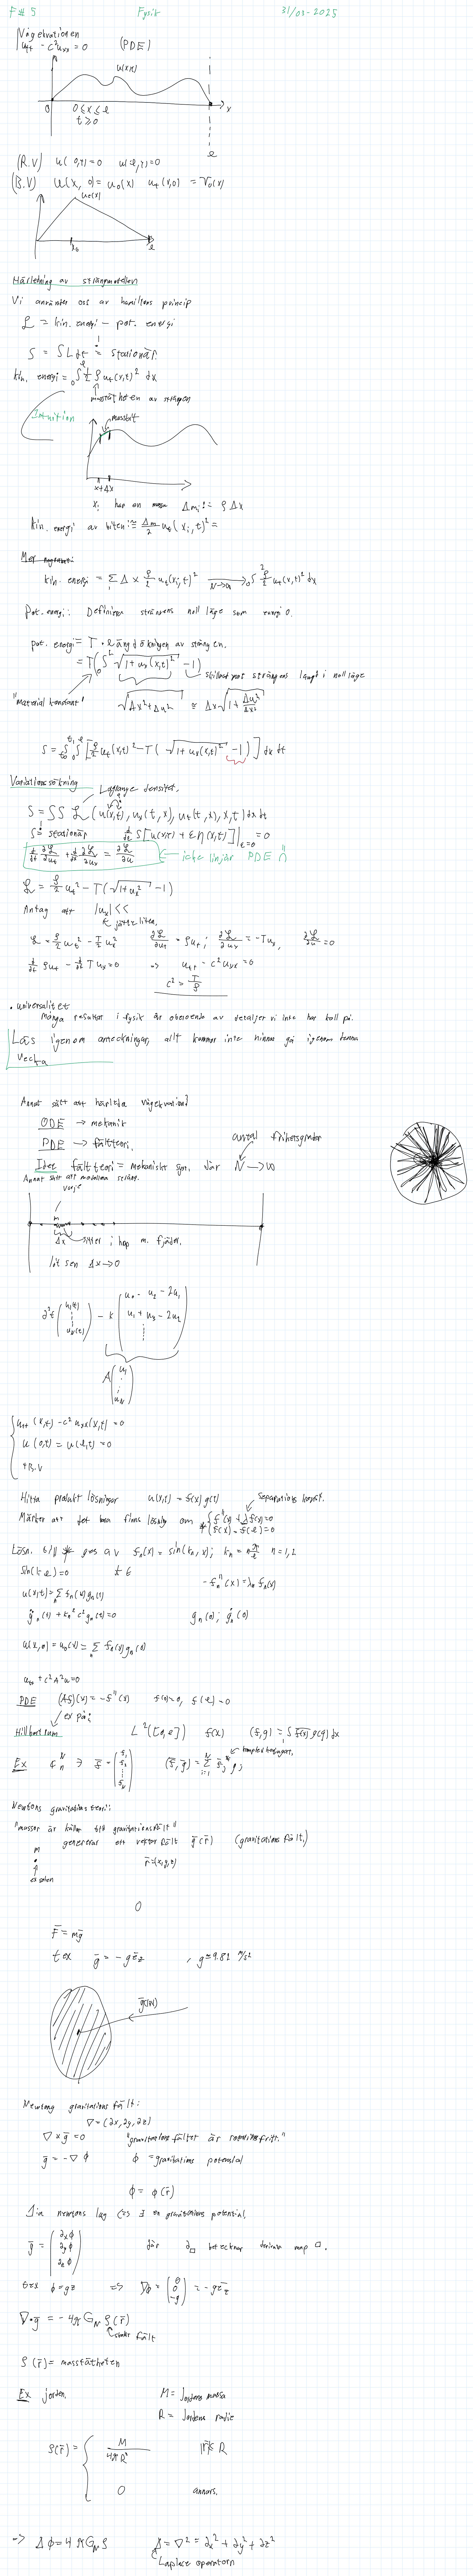 F# 5 Fysik 31/03-2025
Vågekvationen
u_tt - c²u_xx = 0 (PDE)
u(x,t)
0 x
0 ≤ x ≤ ℓ
t ≥ 0
ℓ
(R.V) u(0,t)=0 u(ℓ,t)=0
(B.V) u(x,0)=u_0(x) u_t(x,0) = v_0(x)
u_0(x)
x_0 ℓ
Härledning av strängmodellen
Vi använder oss av hamiltons princip
L = kin. energi - pot. energi
S = ∫L dt = stationär.
kin. energi = ∫ ½ ρ u_t(x,t)² dx
masstätheten av strängen
Intuition
massbit
x+Δx
x_i har en massa Δm_i = ρ Δx
kin. energi av biten: ≅ Δm/2 u_t(x_i,t)² =
kin. energi = Σ Δx ρ/2 u_t(x_i,t)² → ∫ ρ/2 u_t(x,t)² dx
N→∞
Pot. energi: Definiera strängens noll läge som energi 0.
pot. energi = T · längdökningen av strängen.
= T(∫ √(1+u_x(x,t)²) - 1)
skillnad mot strängens längd i nolläge
"Material konstant"
√(Δx²+Δu²) ≅ Δx√(1+Δu²/Δx²)
S = ∫∫[ρ/2 u_t(x,t)² - T(√(1+u_x(x,t)²) - 1)] dx dt
Variationsräkning
Lagrange densitet.
S = ∫∫ L(u(x,t), u_x(t,x), u_t(t,x), x, t) dx dt
S = stationär d/dε S[u(x,t) + εη(x,t)]|_ε=0 = 0
d/dt ∂L/∂u_t + d/dx ∂L/∂u_x = ∂L/∂u ← icke linjär PDE
L = ρ/2 u_t² - T(√(1+u_x²) - 1)
Antag att |u_x| <<
jätte liten.
L = ρ/2 u_t² - T/2 u_x² ∂L/∂u_t = ρu_t; ∂L/∂u_x = -Tu_x, ∂L/∂u = 0
d/dt ρu_t - d/dx T u_x = 0 => u_tt - c²u_xx = 0
c² = T/ρ
• universalitet
Många resultat i fysik är oberoende av detaljer vi inte har koll på.
Läs igenom anteckningar, allt kommer inte hinnas gå igenom denna
vecka
Annat sätt att härleda vågekvation?
ODE → mekanik
PDE → fältteori.
antal frihetsgrader
Idee fältteori = mekaniskt syst. där N → ∞
Annat sätt att modellera sträng.
varje
m
Δx sitter i hop m. fjäder.
låt sen Δx → 0
∂²t (u_1(t) ⋮ u_N(t)) - k (u_0 - u_2 - 2u_1
u_1 + u_3 - 2u_2
⋮)
A (u_1 ⋮ u_N)
u_tt(x,t) - c²u_xx(x,t) = 0
u(0,t) = u(ℓ,t) = 0
+B.V
Hitta produkt lösningar u(x,t) = f(x)g(t) Separations konst.
Märker att det bara finns lösning om * { f''(x) + λf(x) = 0
f(0) = f(ℓ) = 0
Lösn. till * ges av f_n(x) = sin(k_n, x); k_n = nπ/ℓ n=1,2
sin(kℓ)=0
-f_n''(x) = λ_n f_n(x)
u(x,t) = Σ f_n(x) g_n(t)
g̈_n(t) + k_n² c² g_n(t) = 0 g_n(0); ġ_n(0)
u(x,0) = u_0(x) = Σ f_n(x) g_n(0)
u_tt + c²A²u = 0
PDE (Af)(x) = -f''(x) f(0)=0, f(ℓ)=0
ex på:
Hilbertrum L²([0,ℓ]) f(x) (f,g) = ∫ f(x) g(x) dx
komplex konjugat.
Ex ∋ f̄ = (f_1 f_2 ⋮ f_N) (f̄,ḡ) = Σ f_j* g_j
Newtons gravitations teori:
"massor är källor till gravitationsfält"
genererar ett vektor fält ḡ(r̄) (gravitations fält.)
m
r̄=(x,y,z)
ex solen
0
F̄ = mḡ
t ex ḡ = -g ē_z , g≅9.82 m/s²
ḡ(r̄)
Newtons gravitations fält:
∇ = (∂x, ∂y, ∂z)
∇ × ḡ = 0 "gravitations fältet är rotationsfritt."
ḡ = -∇ϕ ϕ = gravitations potential
ϕ = ϕ(r̄)
1:a newtons lag <=> ∃ en gravitations potential.
ḡ = (∂_x ϕ ∂_y ϕ ∂_z ϕ) där ∂_□ betecknar derivata map □.
t ex ϕ = gz => ∇ϕ = (0 0 -g) = -g ē_z
∇·ḡ = -4π G_N ρ(r̄)
skalär fält
ρ(r̄) = masstätheten
Ex jorden. M = Jordens massa
R = Jordens radie
ρ(r̄) = { M/(4πR³) |r̄| ≤ R
0 annars.
=> Δϕ = 4π G_N ρ Δ = ∇² = ∂x² + ∂y² + ∂z²
Laplace operatorn